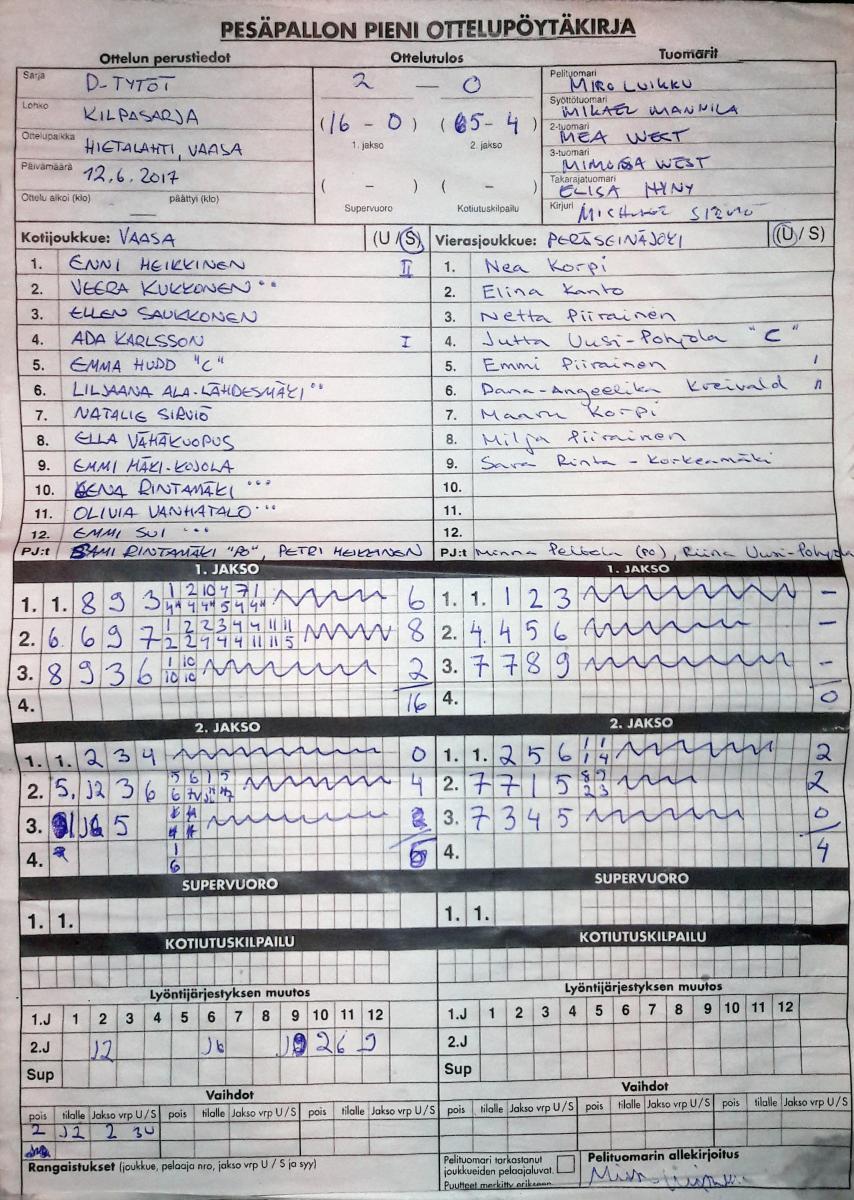 PESÄPALLON PIENI OTTELUPÖYTÄKIRJA
Ottelun perustiedot
Sarja D-TYTÖT
Lohko KILPASARJA
Ottelupaikka HIETALAHTI, VAASA
Päivämäärä 12.6.2017
Ottelu alkoi (klo) — päättyi (klo)
Ottelutulos
2 — 0
(16 - 0) (5 - 4)
1. jakso 2. jakso
( - ) ( - )
Supervuoro Kotiutuskilpailu
Tuomarit
Pelituomari MIRO LUIKKU
Syöttötuomari MIKAEL MANNILA
2-tuomari MEA WEST
3-tuomari MIMOSA WEST
Takarajatuomari ELISA
Kirjuri
Kotijoukkue: VAASA (U/S)
1. ENNI HEIKKINEN II
2. VEERA KUKKONEN ••
3. ELLEN SAUKKONEN
4. ADA KARLSSON I
5. EMMA HUDD "C"
6. LILJAANA ALA-LÄHDESMÄKI ••
7. NATALIE SIRVIÖ
8. ELLA VÄHÄKUOPUS
9. EMMI MÄKI-KOJOLA
10. EENA RINTAMÄKI •••
11. OLIVIA VANHATALO •••
12. EMMI SUI •••
PJ:t SAMI RINTAMÄKI "PO", PETRI HEIKKINEN
Vierasjoukkue: PERÄSEINÄJOKI (U/S)
1. Nea Korpi
2. Elina Kanto
3. Netta Piirainen
4. Jutta Uusi-Pohjola "C"
5. Emmi Piirainen I
6. Dana-Angeelika Kreivald II
7. Maaru Korpi
8. Milja Piirainen
9. Sara Rinta-Korkeamäki
10.
11.
12.
PJ:t Minna Peltola (PO), Riina Uusi-Pohjola
1. JAKSO
1. 1. 8 9 3 1 2 10 4 7 1 6
2. 6. 6 9 7 1 2 2 3 4 4 11 11 8
2 2 4 4 4 11 11 5
3. 8 9 3 6 1 10 2
10 10
4. 16
1. JAKSO
1. 1. 1 2 3 –
2. 4. 4 5 6 –
3. 7 7 8 9 –
4. 0
2. JAKSO
1. 1. 2 3 4 0
2. 5. J2 3 6 5 6 1 5 4
3. J6 5
4. 1
6
2. JAKSO
1. 1. 2 5 6 1 1 2
1 4
2. 7 7 1 5 8 9 2
2 3
3. 7 3 4 5 0
4. 4
SUPERVUORO
1. 1.
SUPERVUORO
1. 1.
KOTIUTUSKILPAILU
KOTIUTUSKILPAILU
Lyöntijärjestyksen muutos
1.J 1 2 3 4 5 6 7 8 9 10 11 12
2.J J2 J6 2 6 9
Sup
Lyöntijärjestyksen muutos
1.J 1 2 3 4 5 6 7 8 9 10 11 12
2.J
Sup
Vaihdot
pois tilalle Jakso vrp U/S pois tilalle Jakso vrp U/S pois tilalle Jakso vrp U/S
2 J2 2 3U
Vaihdot
pois tilalle Jakso vrp U/S pois tilalle Jakso vrp U/S pois tilalle Jakso vrp U/S
Rangaistukset (joukkue, pelaaja nro, jakso vrp U/S ja syy)
Pelituomari tarkastanut
joukkueiden pelaajaluvat.
Puutteet merkitty erikseen
Pelituomarin allekirjoitus